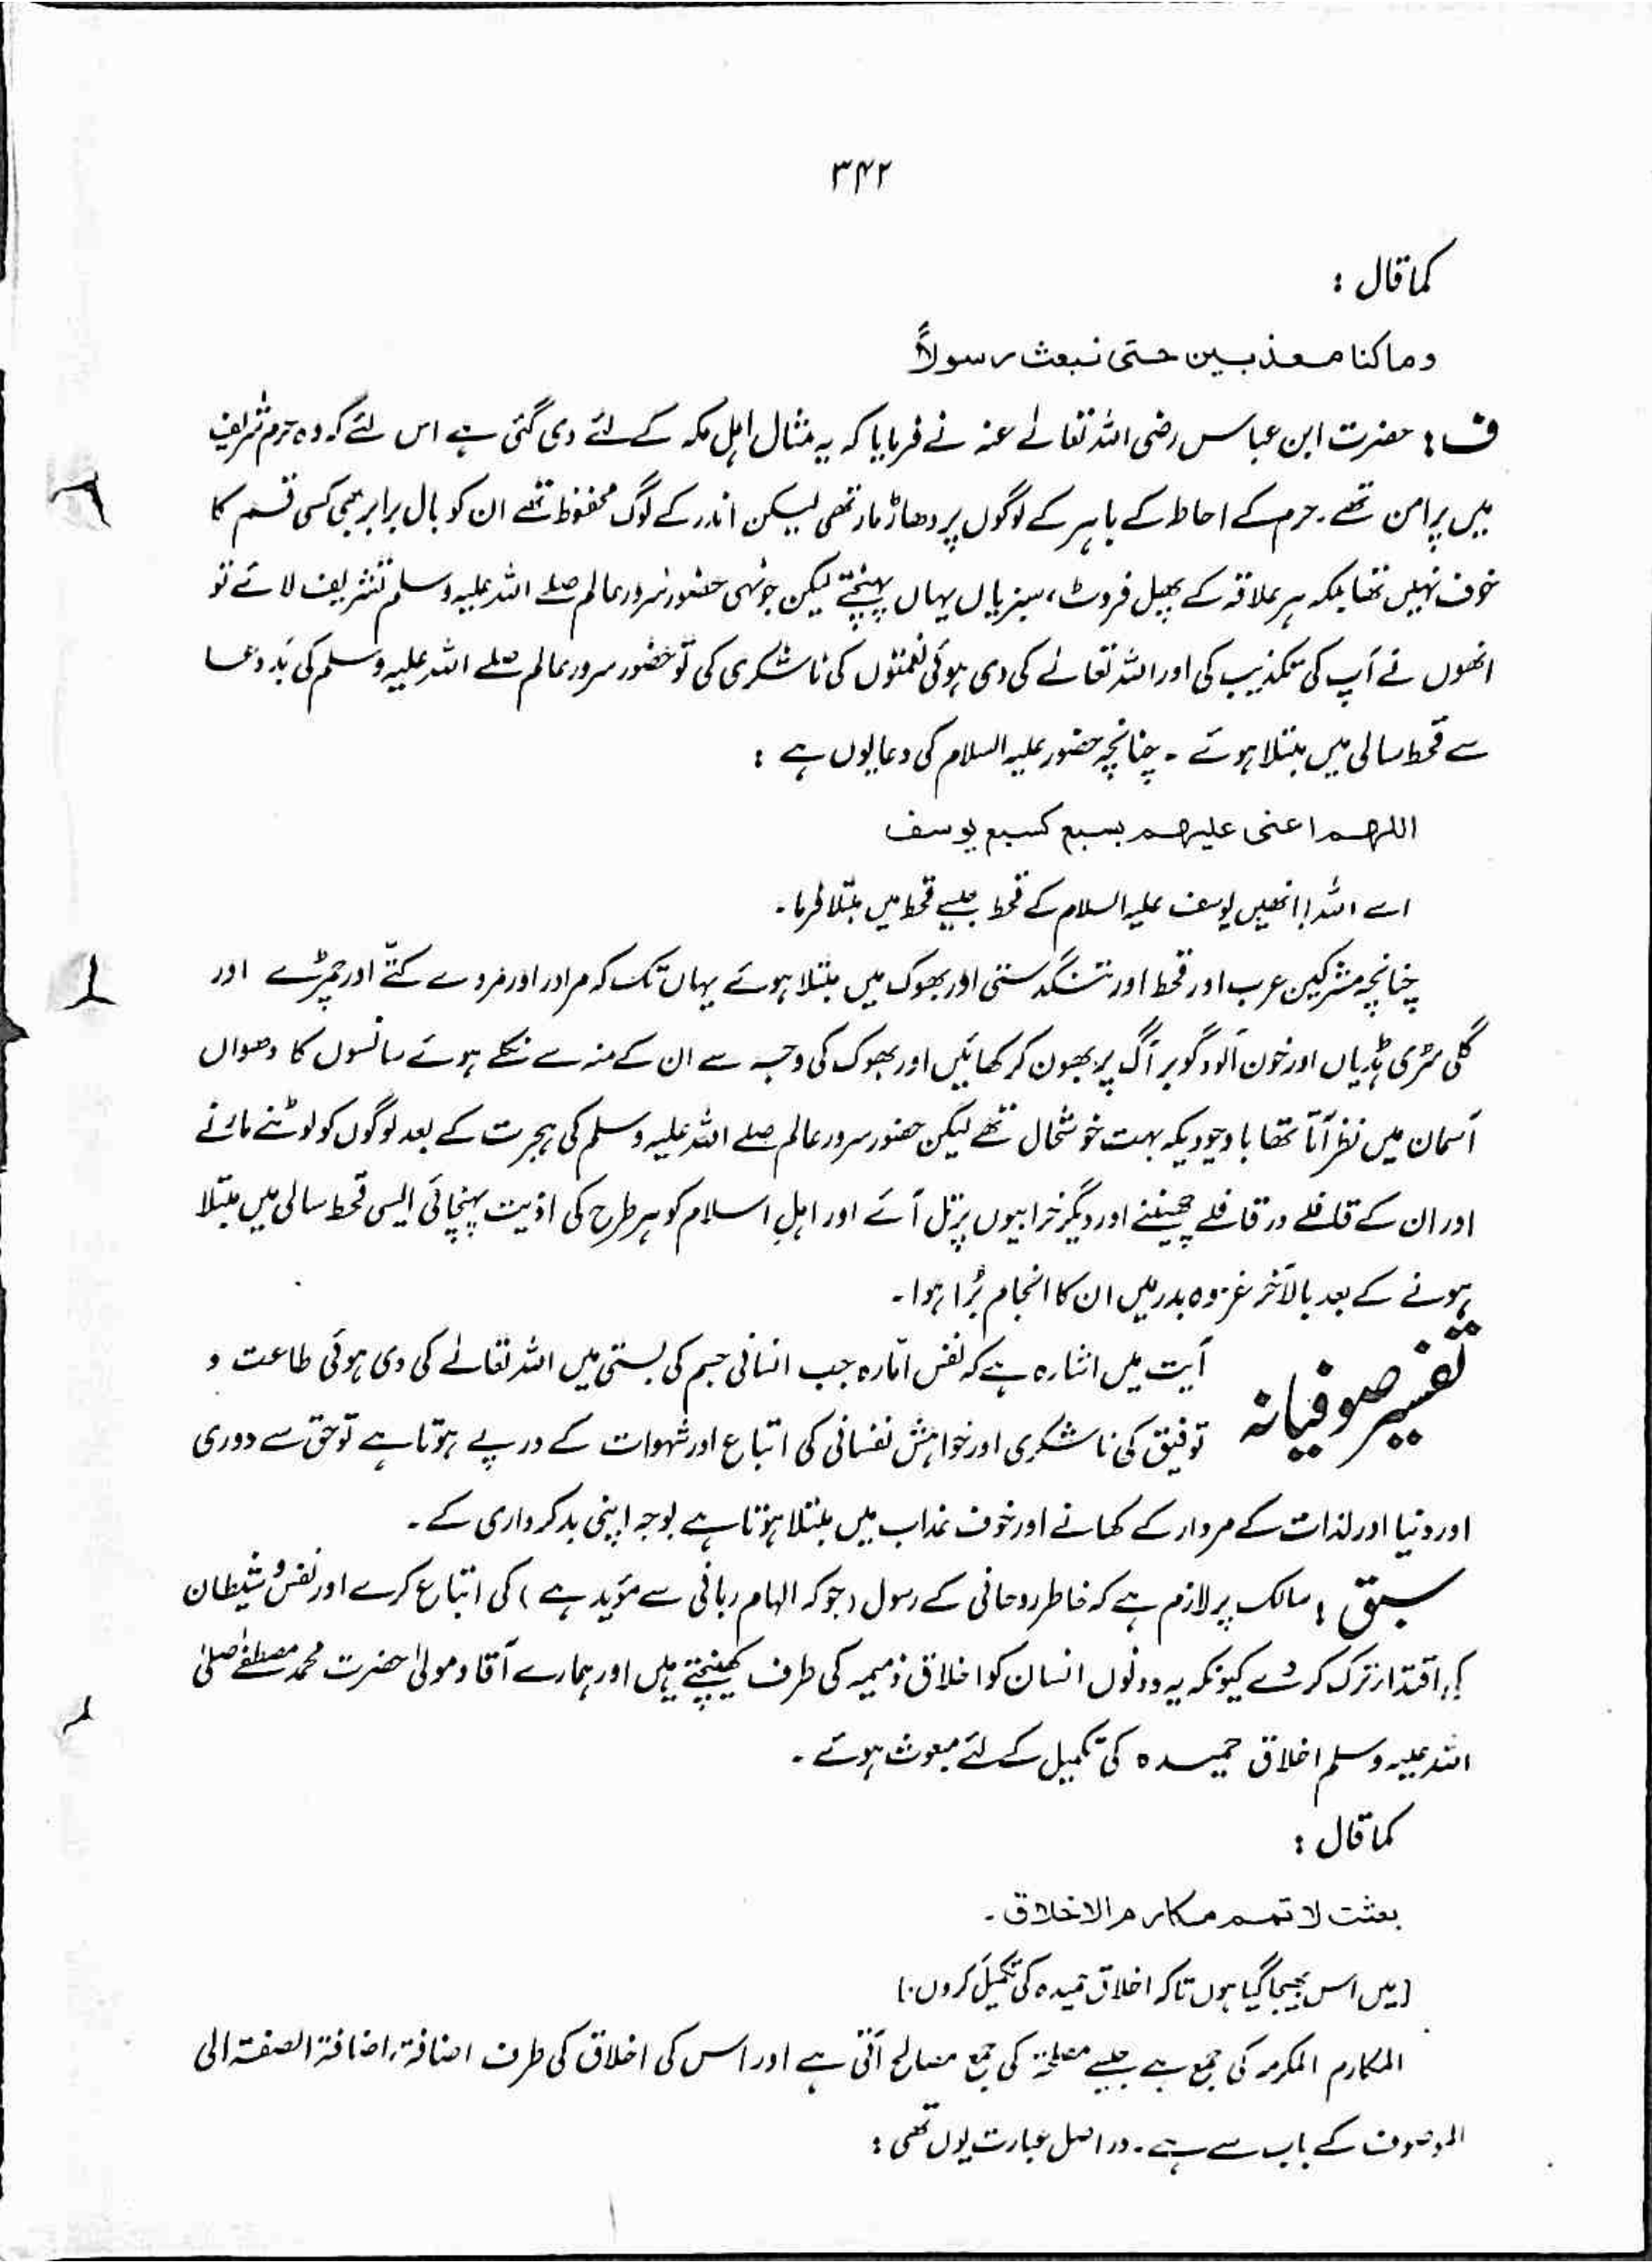 ۳۴۲
کما قال :
وما کنا معذبین حتی نبعث رسولاً
ف : حضرت ابن عباس رضی اللہ تعالےٰ عنہ نے فرمایا کہ یہ مثال اہل مکہ کے لئے دی گئی ہے اس لئے کہ وہ حرم شریف
میں پرامن تھے۔ حرم کے احاطہ کے باہر کے لوگوں پر دھاڑ مار تھی لیکن اندر کے لوگ محفوظ تھے ان کو بال برابر بھی کسی قسم کا
خوف نہیں تھا بلکہ ہر علاقہ کے پھل فروٹ، سبزیاں یہاں پہنچتے لیکن جونہی حضور سرور عالم صلے اللہ علیہ وسلم تشریف لائے تو
انھوں نے آپ کی تکذیب کی اور اللہ تعالےٰ کی دی ہوئی نعمتوں کی ناشکری کی تو حضور سرور عالم صلے اللہ علیہ وسلم کی بد دعا
سے قحط سالی میں مبتلا ہوئے ۔ چنانچہ حضور علیہ السلام کی دعا یوں ہے :
اللہم اعنی علیہم بسبع کسبع یوسف
اے اللہ! انھیں یوسف علیہ السلام کے قحط جیسے قحط میں مبتلا فرما۔
چنانچہ مشرکین عرب اور قحط اور تنگدستی اور بھوک میں مبتلا ہوئے یہاں تک کہ مرادر اور مردے کتّے اور چمڑے اور
گلی سڑی ہڈیاں اور خون آلود گوبر آگ پر بھون کر کھائیں اور بھوک کی وجہ سے ان کے منہ سے نکلے ہوئے سانسوں کا دھواں
آسمان میں نظر آتا تھا باوجودیکہ بہت خوشحال تھے لیکن حضور سرور عالم صلے اللہ علیہ وسلم کی ہجرت کے بعد لوگوں کو لوٹنے مارنے
اور ان کے قافلے در قافلے چھیننے اور دیگر خرابیوں پر تل آئے اور اہلِ اسلام کو ہر طرح کی اذیت پہنچائی ایسی قحط سالی میں مبتلا
ہونے کے بعد بالآخر غزوہ بدر میں ان کا انجام بُرا ہوا۔
تفسیر صوفیانہ آیت میں اشارہ ہے کہ نفس امّارہ جب انسانی جسم کی بستی میں اللہ تعالےٰ کی دی ہوئی طاعت و
توفیق کی ناشکری اور خواہش نفسانی کی اتباع اور شہوات کے درپے ہوتا ہے تو حق سے دوری
اور دنیا اور لذات کے مردار کے کھانے اور خوف عذاب میں مبتلا ہوتا ہے بوجہ اپنی بدکرداری کے ۔
سبق : سالک پر لازم ہے کہ خاطر روحانی کے رسول (جو کہ الہام ربانی سے مؤید ہے) کی اتباع کرے اور نفس و شیطان
کی اقتدار ترک کر دے کیونکہ یہ دونوں انسان کو اخلاق ذمیمہ کی طرف کھینچتے ہیں اور ہمارے آقا و مولیٰ حضرت محمد مصطفےٰ صلی
اللہ علیہ وسلم اخلاق حمیدہ کی تکمیل کے لئے مبعوث ہوئے ۔
کما قال :
بعثت لاتمم مکارم الاخلاق ۔
[میں اس بھیجا گیا ہوں تاکہ اخلاق حمیدہ کی تکمیل کروں۔]
المکارم المکرمہ کی جمع ہے جیسے مصلحۃ کی جمع مصالح آتی ہے اور اس کی اخلاق کی طرف اضافۃ، اضافۃ الصفۃ الی
الموصوف کے باب سے ہے۔ دراصل عبارت یوں تھی :